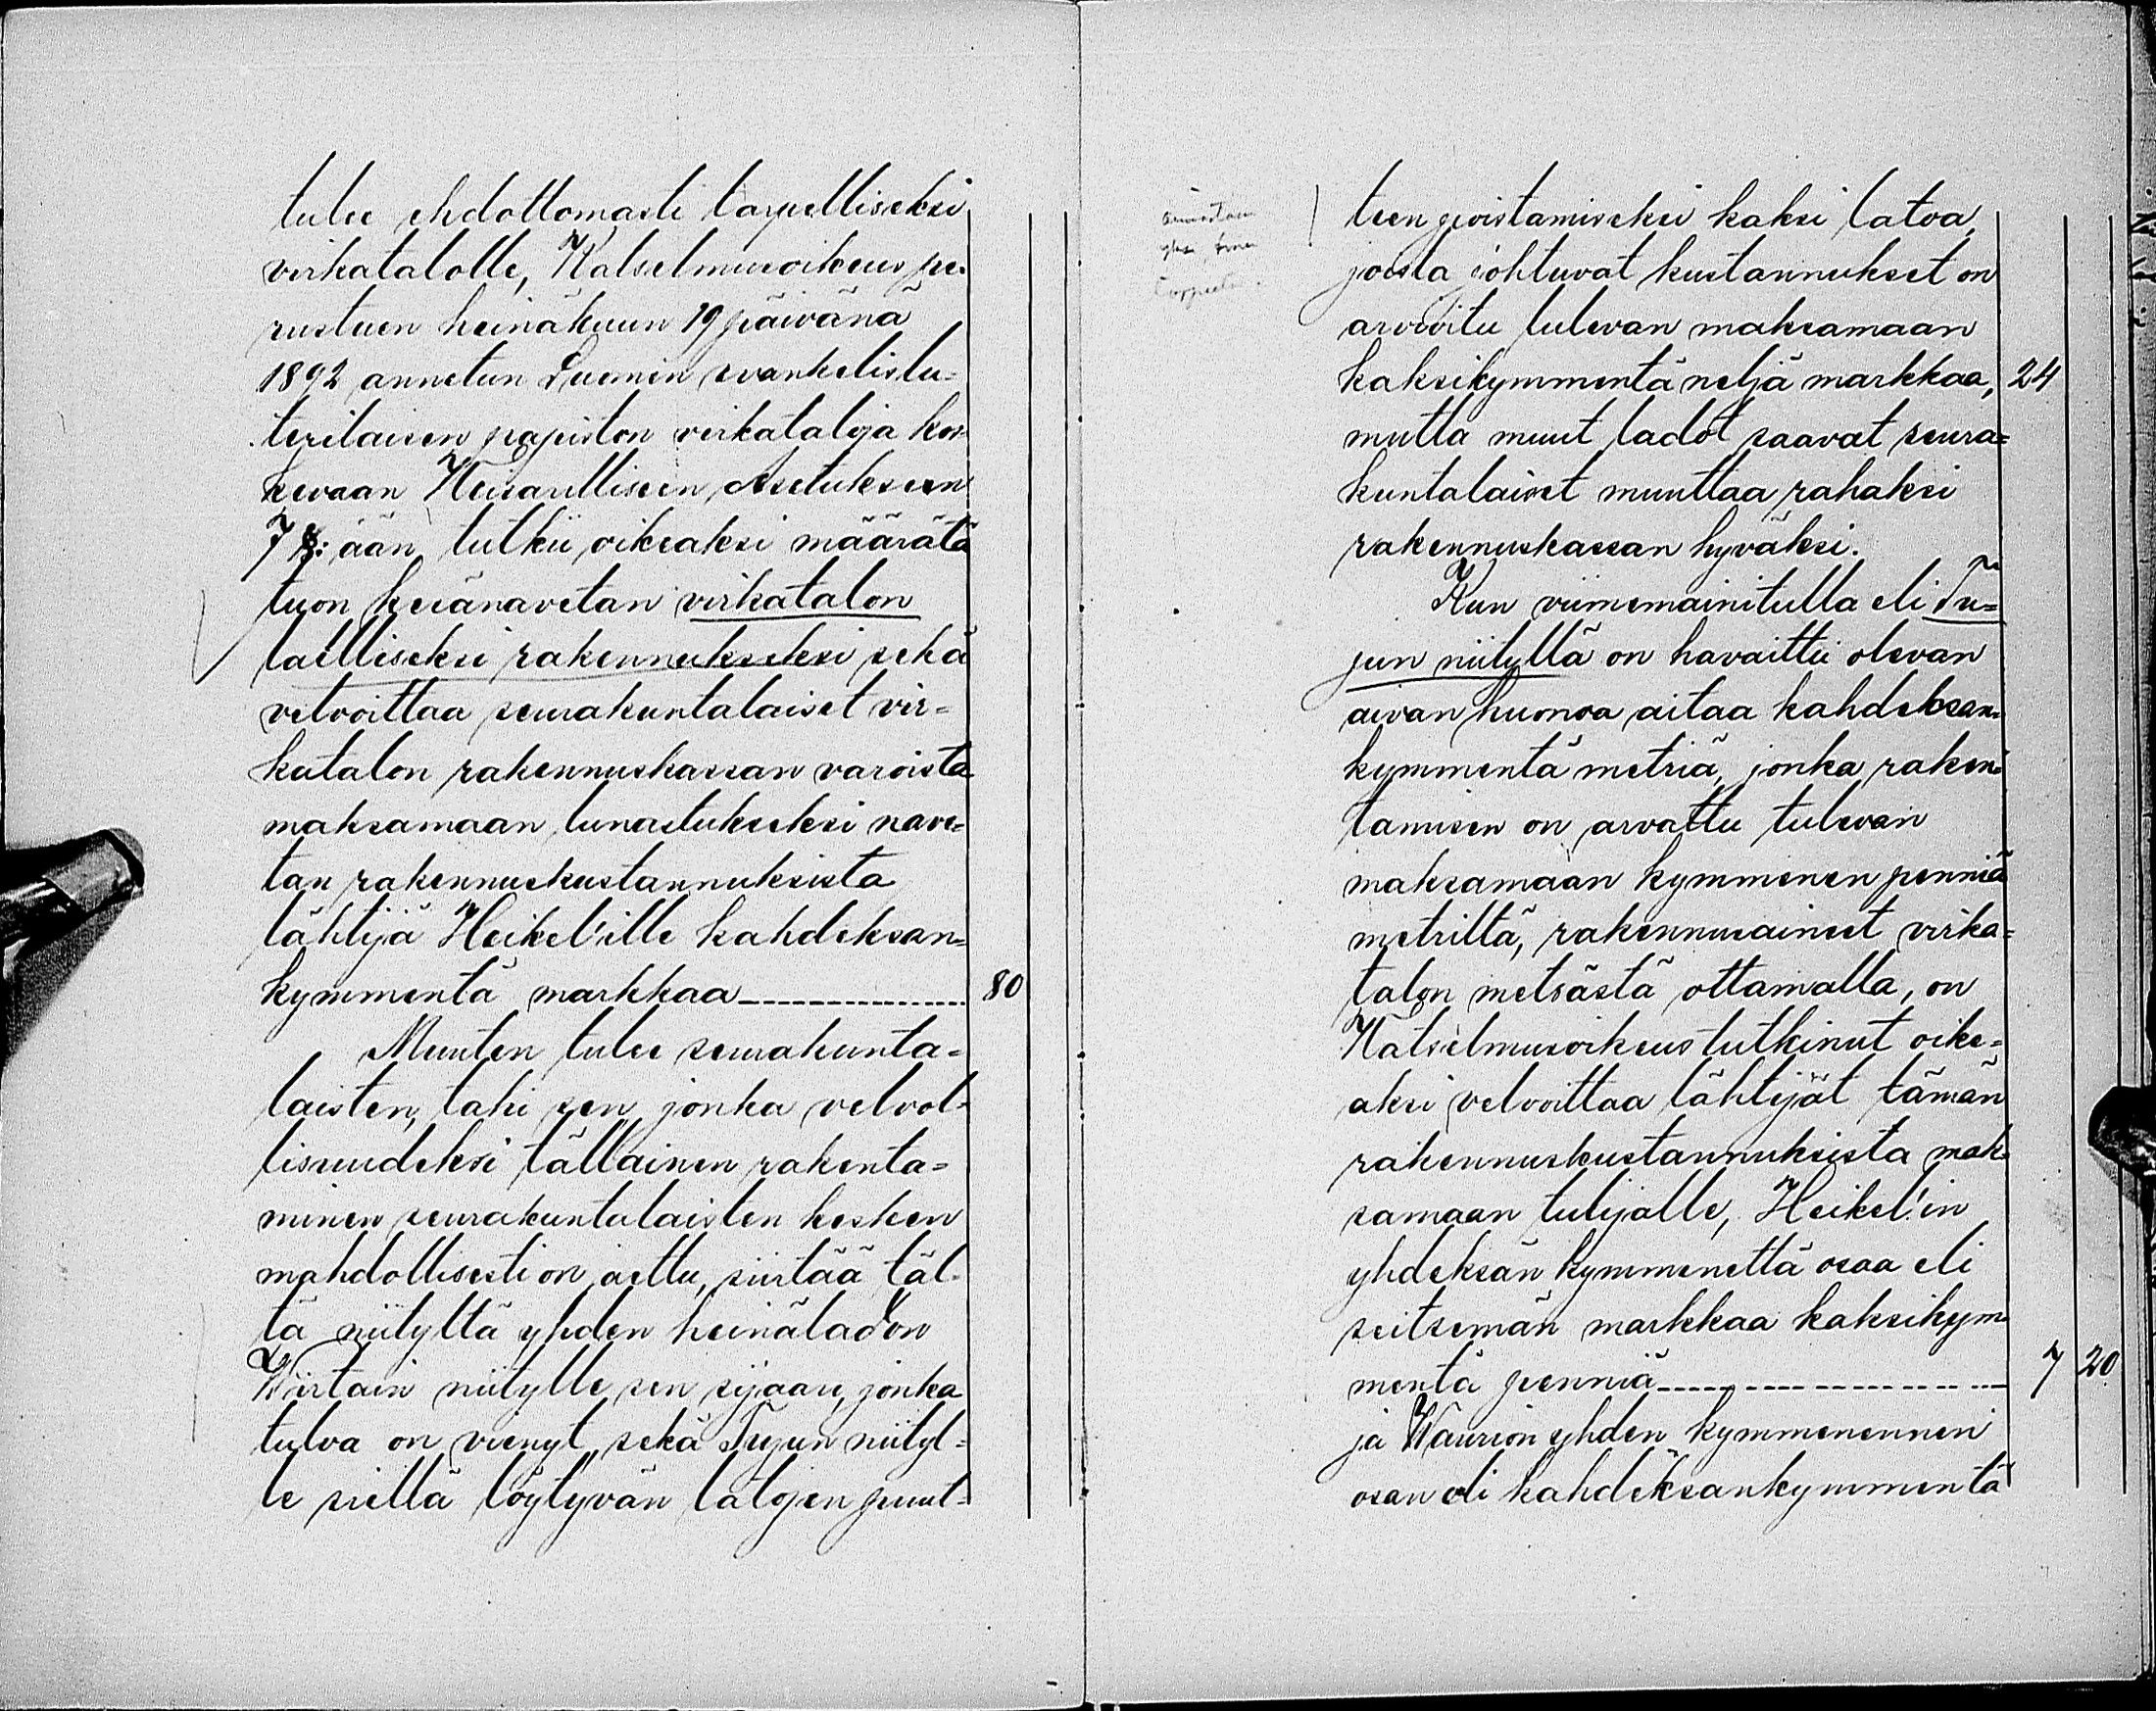 tulee ehdottomasti tarpelliseksi
virkatalolle, Katselmusoikeus pe-
rustuen heinäkuun 19 päivänä
1892 annetun Suomen evankelislu-
terilaisen papiston virkataloja kos-
kevaan Keisarilliseen Asetukseen
7 §:ään, tutkii oikeaksi määrätä
tuon kesänavetan virkatalon
laelliseksi rakennukseksi sekä
velvoittaa seurakuntalaiset vir=
katalon rakennuskassan varoista
maksamaan lunastukseksi nave=
tan rakennuskustannuksista
lähtijä Heikel'ille kahdeksan=
kymmentä markkaa 80
Muuten tulee seurakunta=
laisten, tahi sen, jonka velvol-
lisuudeksi tällainen rakenta=
minen seurakuntalaisten kesken
mahdollisesti on jaettu, siirtää täl-
tä niityltä yhden heinäladon
Wiirtain niitylle sen sijaan, jonka
tulva on vienyt, sekä Tujun niityl=
le siellä löytyvän latojen puut-
teen poistamiseksi kaksi latoa,
joista johtuvat kustannukset on
arvioitu tulevan maksamaan
kaksikymmentä neljä markkaa, 24
mutta muut ladot saavat seura=
kuntalaiset muuttaa rahaksi
rakennuskassan hyväksi.
Kun viimemainitulla eli Tu=
jun niityllä on havaittu olevan
aivan huonoa aitaa kahdeksan=
kymmentä metriä, jonka raken=
tamisen on arvattu tulevan
maksamaan kymmenen penniä
metriltä, rakennusaineet virka=
talon metsästä ottamalla, on
Katselmusoikeus tutkinut oike=
aksi velvoittaa lähtijät tämän
rakennuskustannuksista mak-
samaan tulijalle, Heikel'in
yhdeksän kymmenettä osaa eli
seitsemän markkaa kaksikym-
mentä penniä 7 20
ja Waurion yhden kymmenennen
osan eli kahdeksankymmentä